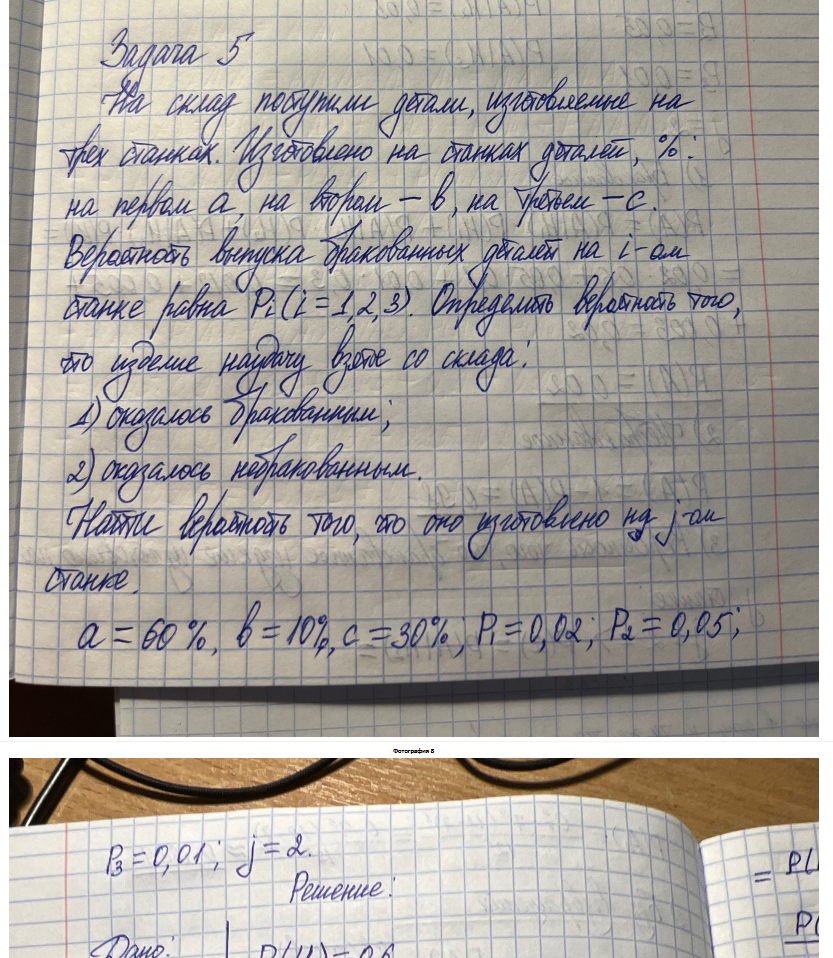 Задача 5
На склад поступили детали, изготовляемые на
трех станках. Изготовлено на станках деталей, %:
на первом a, на втором – в, на третьем – с.
Вероятность выпуска бракованных деталей на i-ом
станке равна Pi (i = 1, 2, 3). Определить вероятность того,
что изделие наудачу взятое со склада:
1) оказалось бракованным;
2) оказалось небракованным.
Найти вероятность того, что оно изготовлено на j-ом
станке.
a = 60%, в = 10%, с = 30%; P1 = 0,02; P2 = 0,05;
Фотография 8
P3 = 0,01; j = 2.
Решение:
= P(
Дано: P(H1) = 0,6
P(